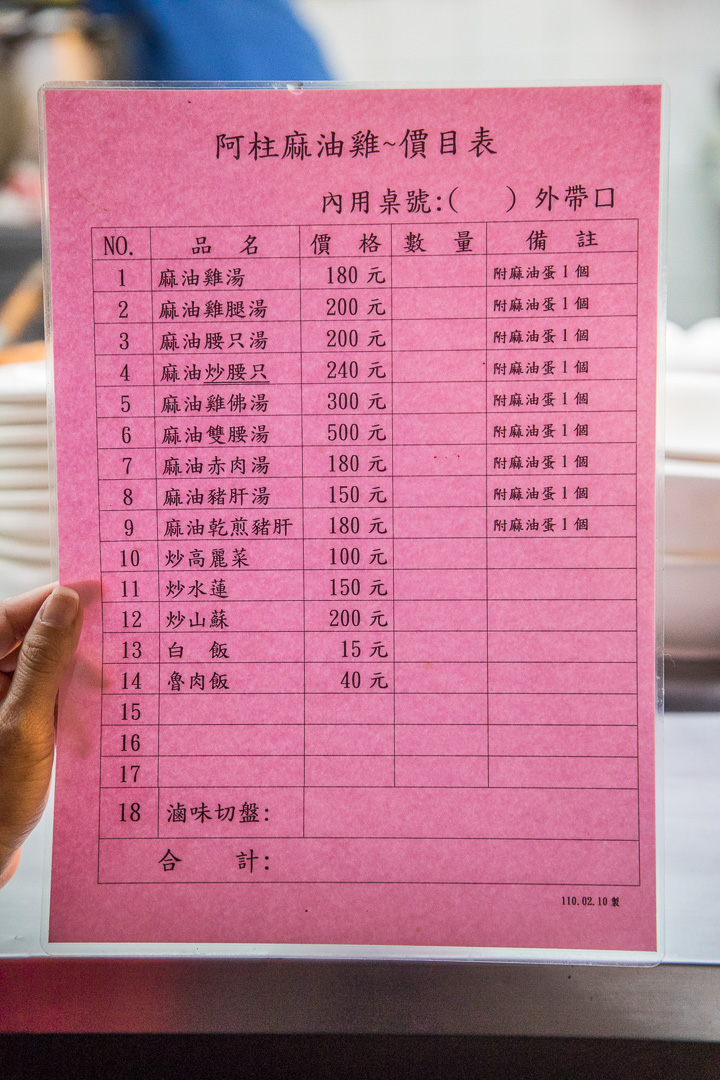 阿柱麻油雞~價目表
內用桌號:(　　) 外帶口
NO. 品　名 價　格 數　量 備　註
1 麻油雞湯 180 元 附麻油蛋 1 個
2 麻油雞腿湯 200 元 附麻油蛋 1 個
3 麻油腰只湯 200 元 附麻油蛋 1 個
4 麻油炒腰只 240 元 附麻油蛋 1 個
5 麻油雞佛湯 300 元 附麻油蛋 1 個
6 麻油雙腰湯 500 元 附麻油蛋 1 個
7 麻油赤肉湯 180 元 附麻油蛋 1 個
8 麻油豬肝湯 150 元 附麻油蛋 1 個
9 麻油乾煎豬肝 180 元 附麻油蛋 1 個
10 炒高麗菜 100 元
11 炒水蓮 150 元
12 炒山蘇 200 元
13 白　飯 15 元
14 魯肉飯 40 元
15
16
17
18 滷味切盤:
合　　計:
110.02.10 製